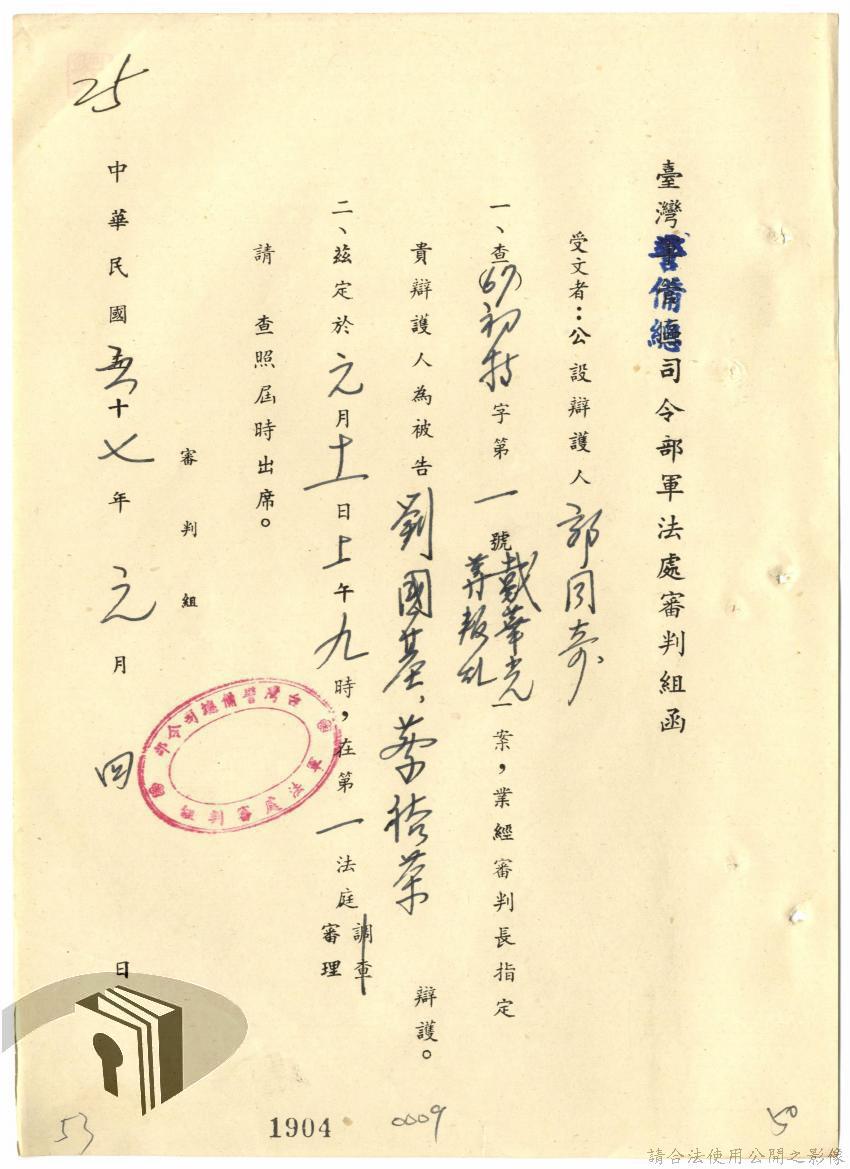 臺灣警備總司令部軍法處審判組函
受文者：公設辯護人郭同奇
一、查(67)初特字第一號戴華光等叛乱一案，業經審判長指定
貴辯護人為被告劉國基、蔡裕荣辯護。
二、茲定於元月十一日上午九時，在第一法庭調查審理
請查照屆時出席。
審判組
台灣警備總司令部
軍法處審判組
中華民國六十七年元月四日
25
53
1904
0009
50
請合法使用公開之影像